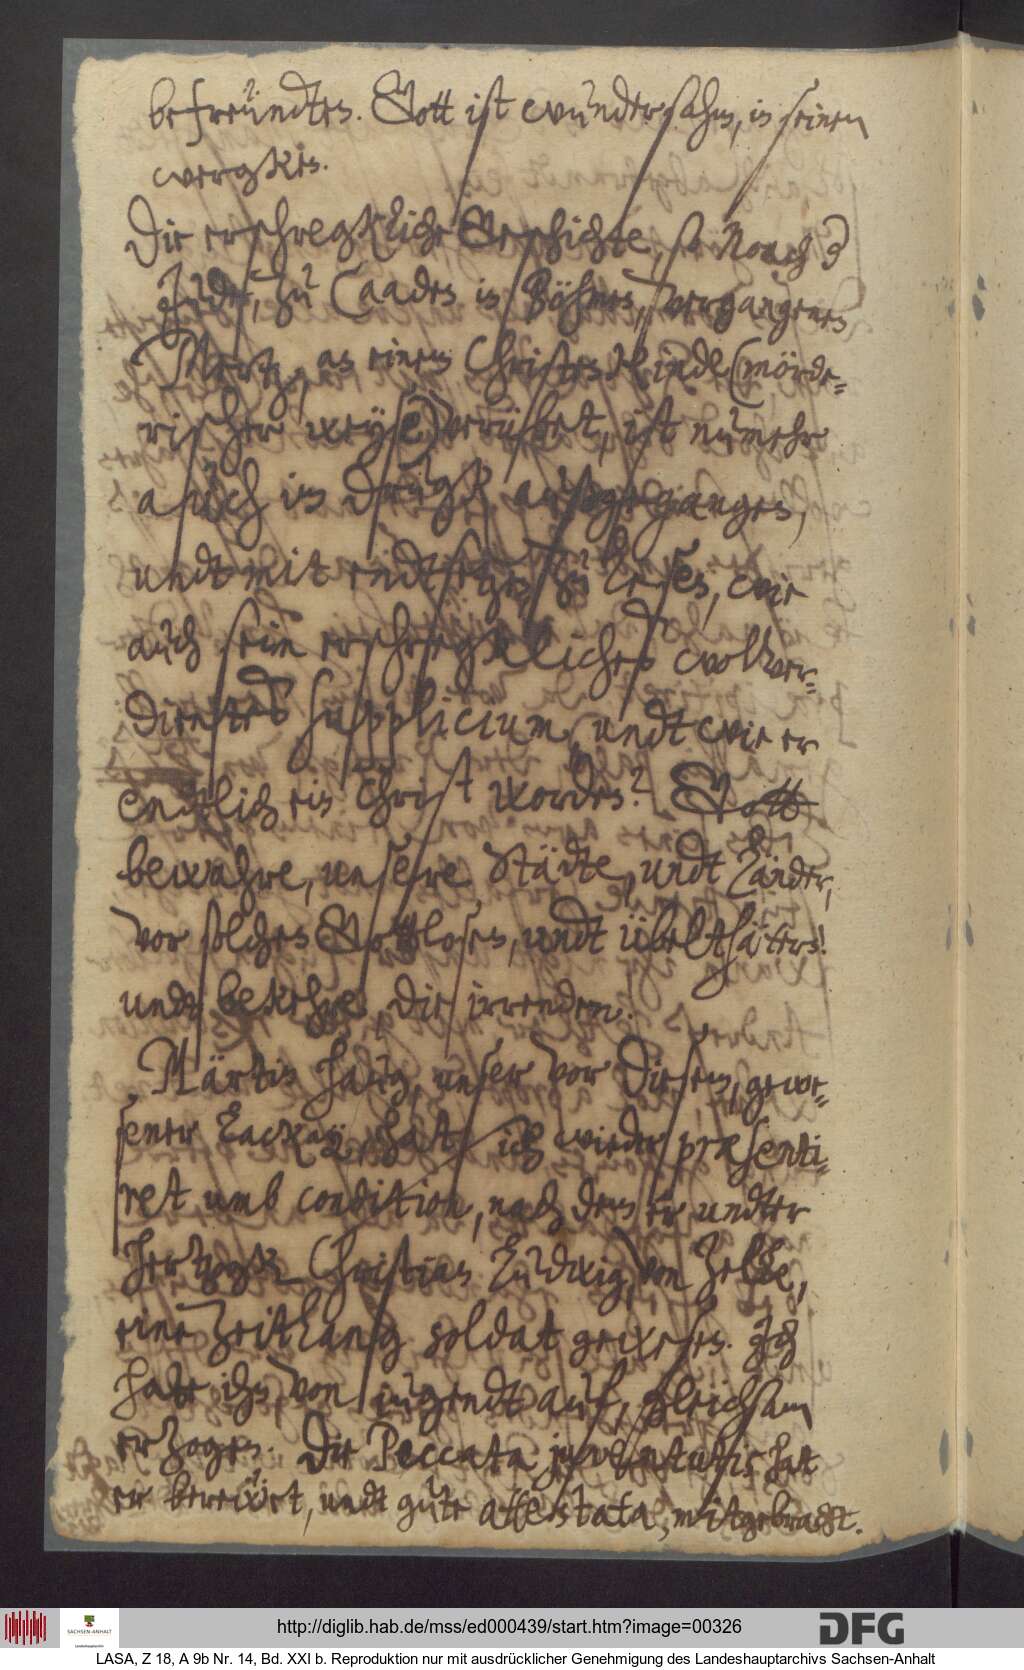 befreündten. Gott ist wundersahm, in seinen
wergken.
Die erschregkliche Geschichte, so Mon
Jude, zu Caaden in Böhmen, vergangenen
Mertz, an einem Christen Kinde (mörde-
rischer weyse) verübet, ist nunmehr
auch in drugk außgegangen,
undt mit endtsetzen, zu lesen, wie
auch sein erschregkliches wolver-
dientes supplicium, undt wie er
endtlich ein Christ worden? Gott
bewahre, unsere Städte, undt Länder,
vor solchen Gottlosen, undt übelthätern!
undt bekehre die irrenden.
Märtin Haug, unser vor diesem, gewe-
sener Lackay, hat sich wieder præsenti-
ret umb condition, nach dem er undter
Hertzogk Christian Ludwig, von Zelle,
eine Zeitlang soldat gewesen. Ich
habe ihn von iugendt auf, gleichsam
erzogen. Die Peccata juventutis hatt
er bereüet, undt gute attestata, mitgebracht.
http://diglib.hab.de/mss/ed000439/start.htm?image=00326
DFG
SACHSEN-ANHALT
LASA, Z 18, A 9b Nr. 14, Bd. XXI b. Reproduktion nur mit ausdrücklicher Genehmigung des Landeshauptarchivs Sachsen-Anhalt